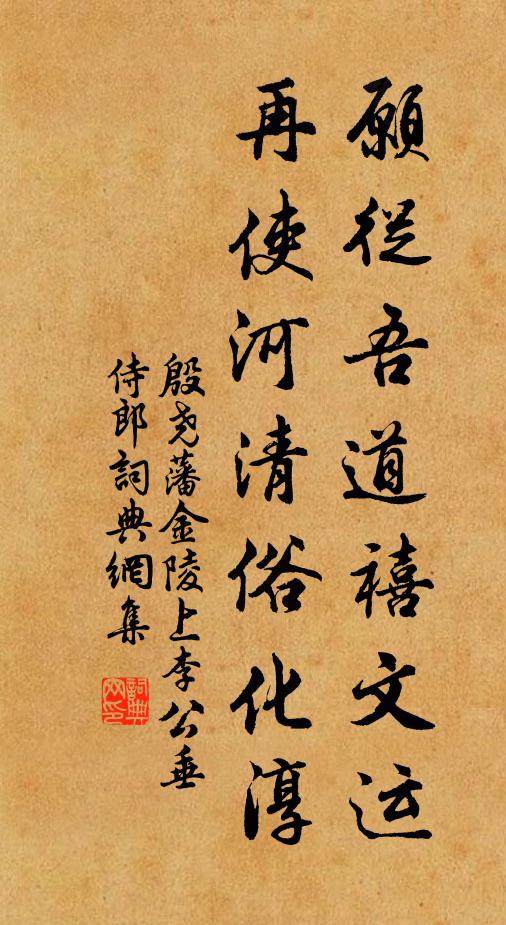 願從吾道禧文运
再使河清俗化淳
殷尧藩金陵上李公垂
侍郎詞典網集
詞典网印